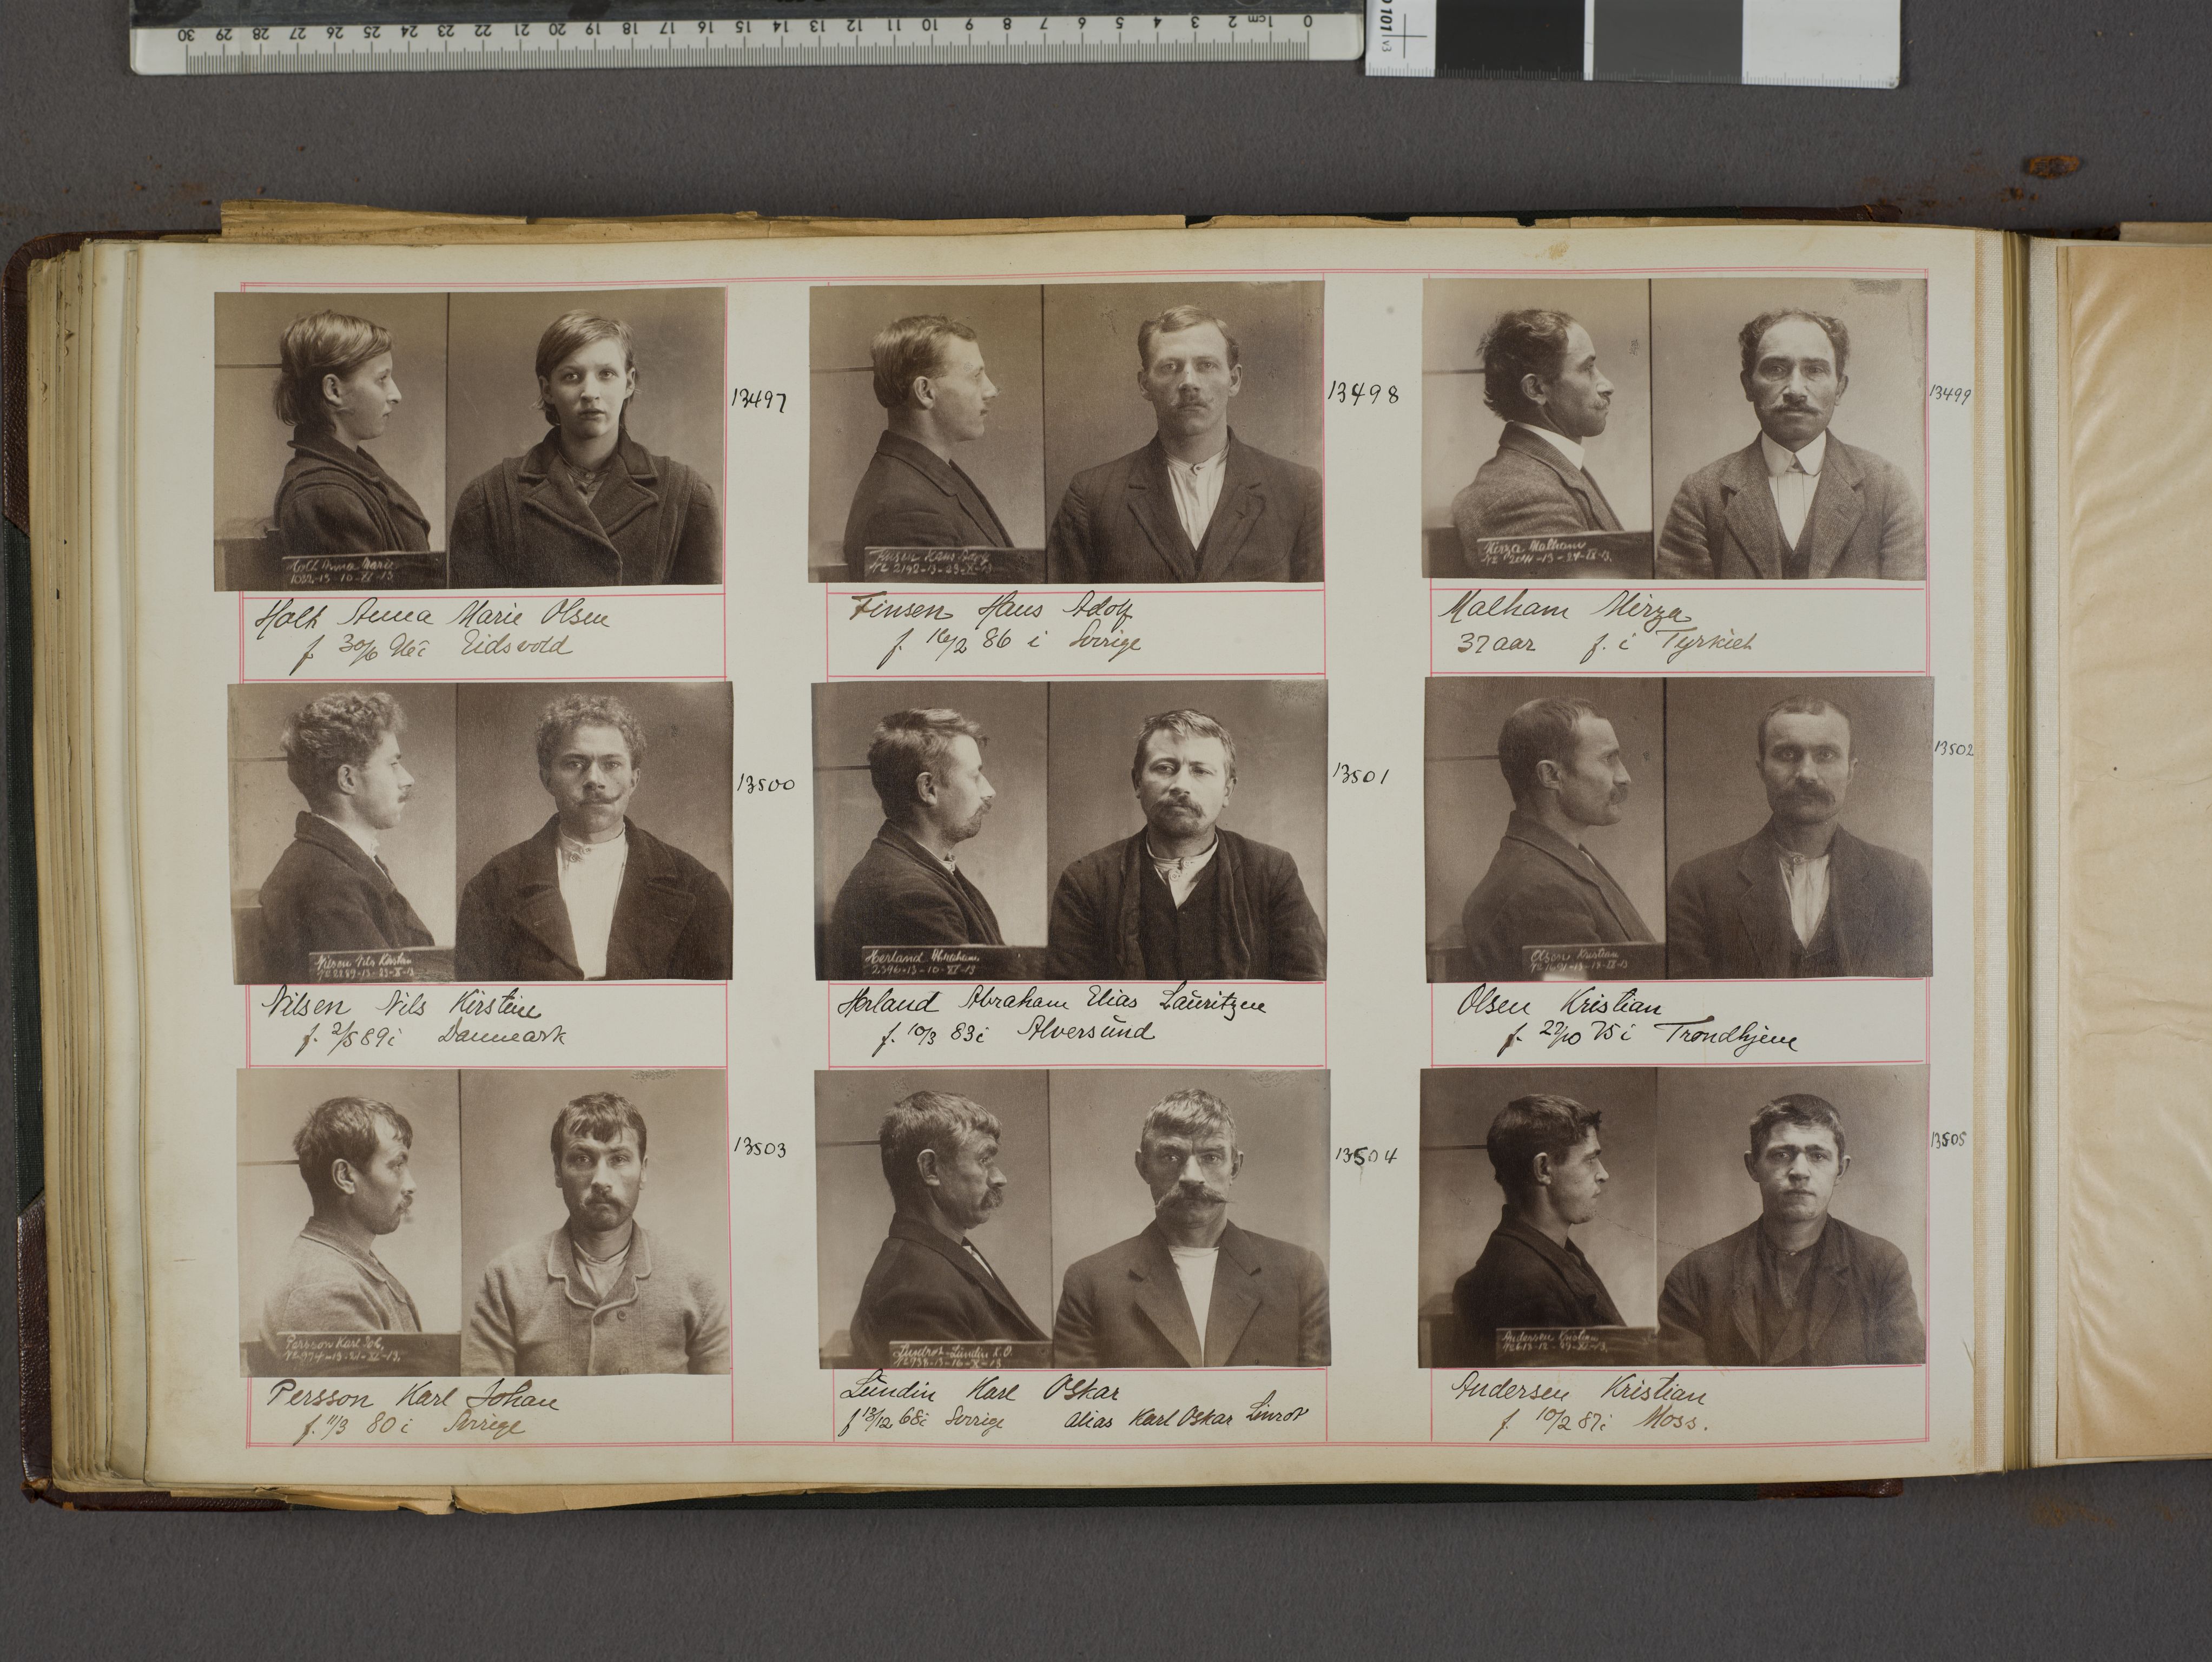 0 1cm 2 3 4 5 6 7 8 9 10 11 12 13 14 15 16 17 18 19 20 21 22 23 24 25 26 27 28 29 30
101 v3
Holt Anna Marie
10-XI-13
13497
Holt Anna Marie Olsen
f 30/6 96 i Eidsvold
Finsen Hans Adolf
No 2192-13-23-X-13
13498
Finsen Hans Adolf
f. 16/2 86 i Sverige
Mirza Malham
13499
Malham Mirza
37 aar f. i Tyrkiet
Nilsen Nils Kirstein
No 2289-13-23-X-13
13500
Nilsen Nils Kirstein
f. 2/5 89 i Danmark
Herland Abraham
2396-13-10-XI-13
13501
Herland Abraham Elias Lauritzen
f. 10/3 83 i Alversund
Olsen Kristian
13502
Olsen Kristian
f. 27/10 75 i Trondhjem
Persson Karl Joh.
No 974-13-21-XI-13.
13503
Persson Karl Johan
f. 11/3 80 i Sverige
Lundin K. O.
No 738-13-16-X-13
13504
Lundin Karl Oskar
f 13/12 68 i Sverige alias Karl Oskar Linrot
Andersen Kristian
13505
Andersen Kristian
f. 10/2 87 i Moss.